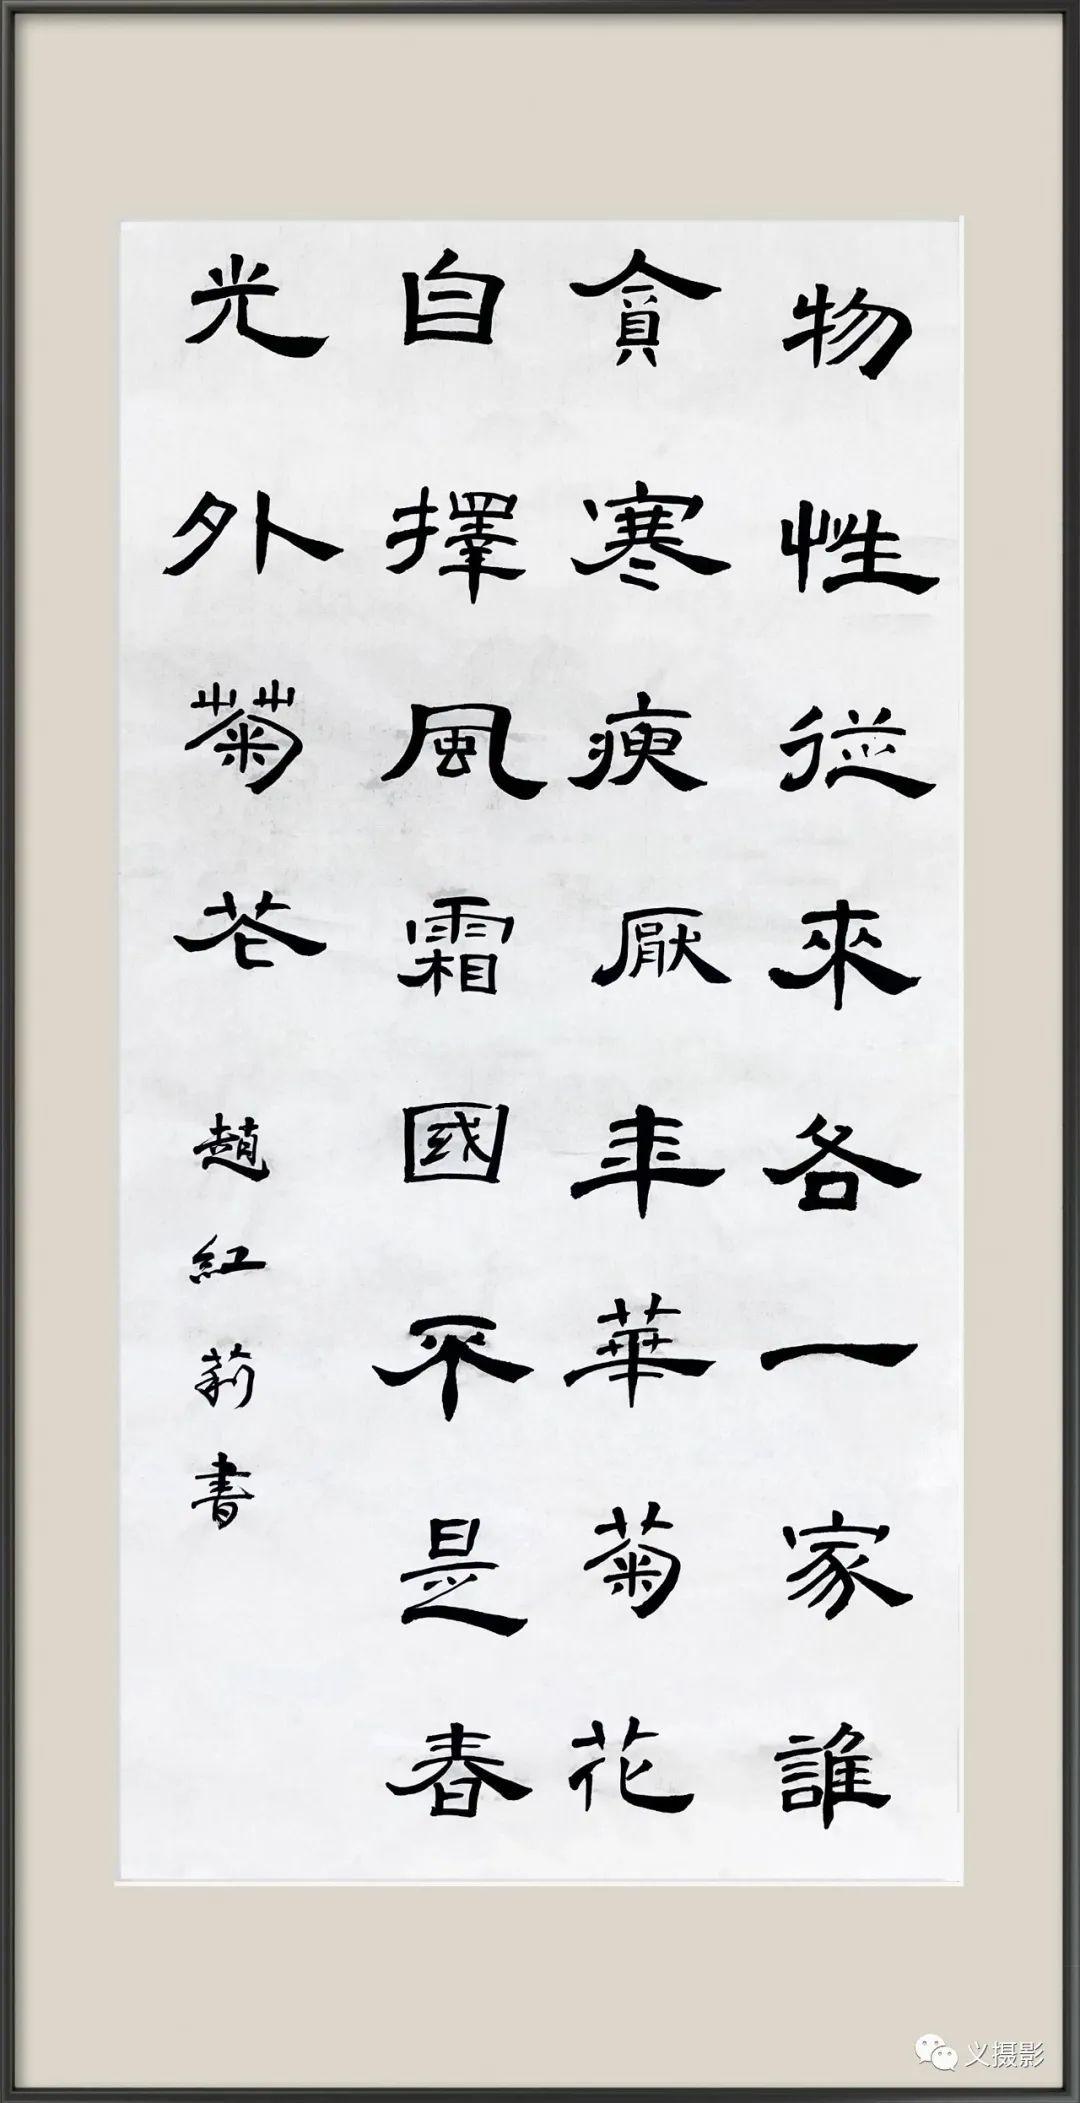 物性從來各一家誰
貪寒瘦厭年華菊花
自擇風霜國不是春
光外菊花
趙紅莉書
义摄影